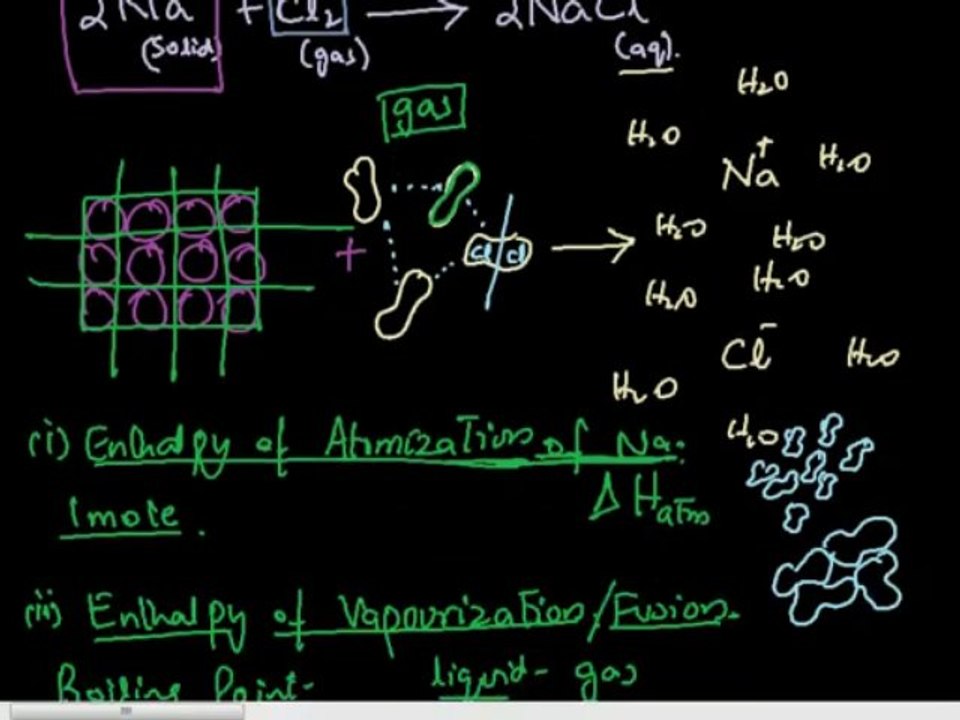 2Na + Cl2 → 2NaCl
(solid) (gas) (aq).
gas
H2O
H2O
Na+ H2O
H2O H2O
+ Cl Cl →
H2O H2O
Cl- H2O
H2O
(i) Enthalpy of Atmization of Na:
H2O
1 mole . ΔHatm
(ii) Enthalpy of Vapourization/Fusion.
Boiling Point- liquid- gas